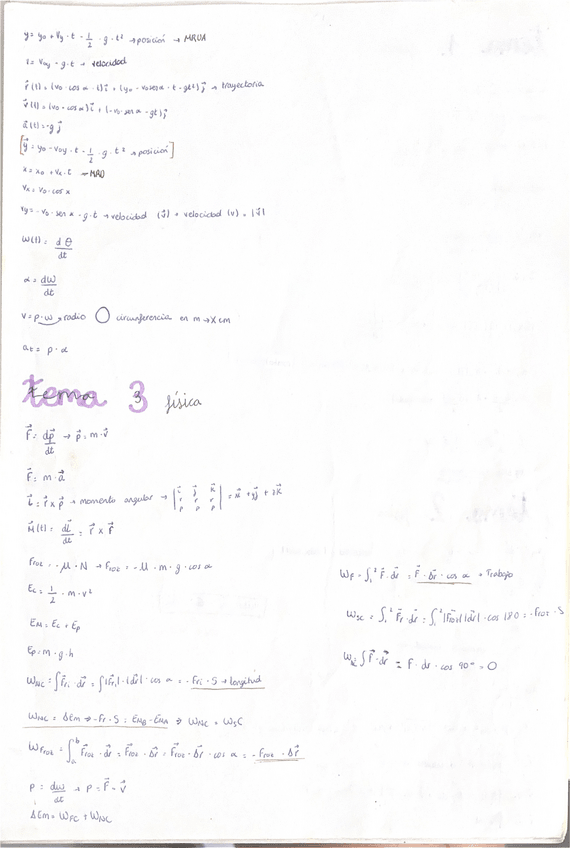 y = y₀ + Vy · t - 1/2 · g · t² → posición → MRUA
v = v₀y - g · t → velocidad
r⃗(t) = (v₀ · cos α · t) i⃗ + (y₀ - v₀ sen α · t - gt²) j⃗ → trayectoria
v⃗(t) = (v₀ · cos α) i⃗ + (-v₀ · sen α - gt) j⃗
a⃗(t) = -g j⃗
[y⃗ = y₀ - v₀y · t - 1/2 · g · t² → posición]
x = x₀ + vx · t → MRU
Vx = V₀ · cos α
Vy = - V₀ · sen α - g · t → velocidad (v⃗) ≠ velocidad (v) = |v⃗|
ω(t) = dθ/dt
α = dω/dt
v = ρ · ω → radio ◯ circunferencia en m → x cm
at = ρ · α
tema 3 física
F⃗ = dp⃗/dt → p⃗ = m · v⃗
F⃗ = m · a⃗
L⃗ = r⃗ x p⃗ → momento angular → | i⃗ j⃗ k⃗ / r r r / p p p | = xi⃗ + yj⃗ + zk⃗
M⃗(t) = dL⃗/dt = r⃗ x F⃗
Froz = - μ · N → Froz = - μ · m · g · cos α
Ec = 1/2 · m · v²
EM = Ec + Ep
Ep = m · g · h
WNC = ∫F⃗ri · dr⃗ = ∫|F⃗ri| · |dr⃗| · cos α = - Fri · S → longitud
WNC = ΔEm ⇒ -Fr · S = EMB - EMA ⇒ WNC = WSC
WFroz = ∫ₐᵇ F⃗roz · dr⃗ = F⃗roz · Δr⃗ = F⃗roz · Δr⃗ · cos α = - Froz · Δr⃗
P = dw/dt → P = F⃗ · v⃗
ΔEm = WFC + WNC
WF = ∫₁² F⃗ · dr⃗ = F⃗ · Dr⃗ · cos α → Trabajo
WSC = ∫₁² F⃗r · dr⃗ = ∫₁² |F⃗roz| |dr⃗| · cos 180 = - Froz · S
∫F⃗ · dr⃗ = F · dr · cos 90° = 0